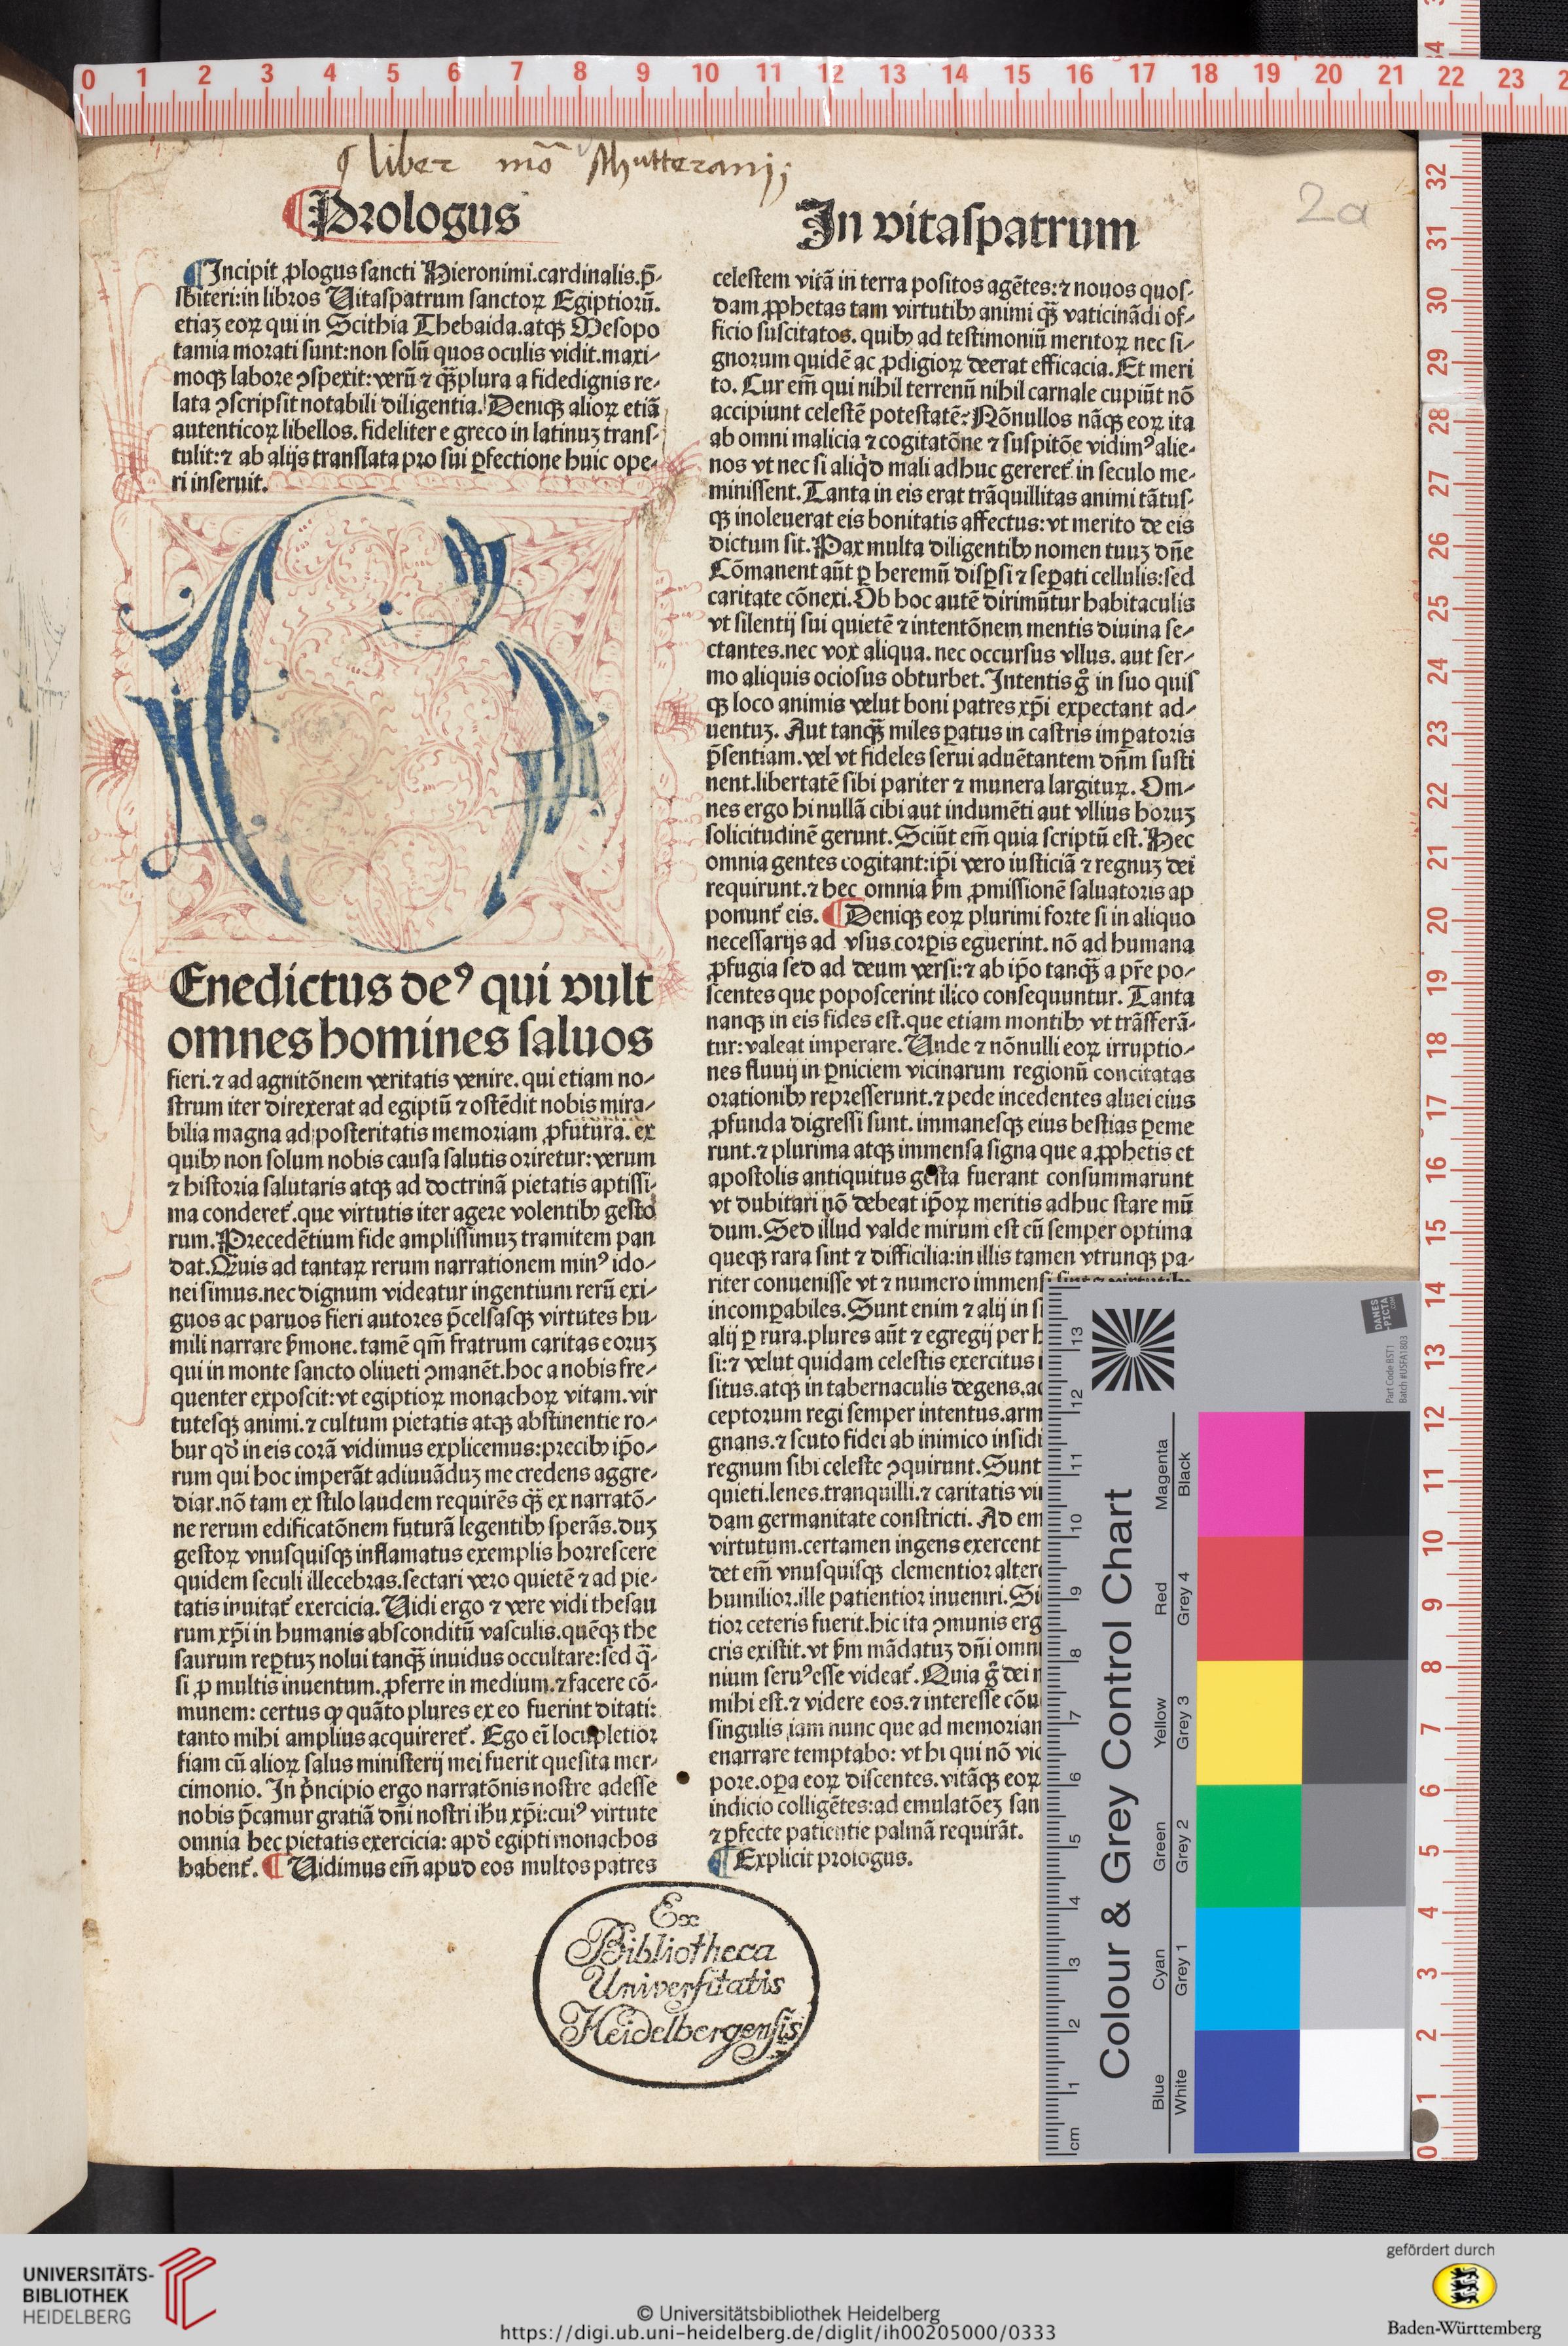 ¶ liber mõ Schutteranj;
Prologus
In vitaſpatrum
¶Incipit ꝓlogus ſancti Hieronimi.cardinalis.p̄-
ſbiteri:in libros Uitaſpatrum ſanctoꝝ Egiptioꝛũ.
etiaꝫ eoꝝ qui in Scithia Thebaida.atqꝫ Meſopo
tamia moꝛati ſunt:non ſolũ quos oculis vidit.maxi-
moqꝫ laboꝛe ↄſpexit:verũ ⁊ qꝫ̃plura a fidedignis re-
lata ↄſcripſit notabili diligentia. Deniqꝫ alioꝝ etiã
autenticoꝝ libellos.fideliter e greco in latinuꝫ tranſ-
tulit:⁊ ab alijs tranſlata pꝛo ſui ꝑfectione huic ope-
ri inſeruit.
Enedictus de⁹ qui vult
omnes homines ſaluos
fieri.⁊ ad agnitõnem veritatis venire. qui etiam no-
ſtrum iter direxerat ad egiptũ ⁊ oſtẽdit nobis mira-
bilia magna ad poſteritatis memoꝛiam ꝓfutura. ex
quibꝰ non ſolum nobis cauſa ſalutis oꝛiretur:verum
⁊ hiſtoꝛia ſalutaris atqꝫ ad doctrinã pietatis aptiſſi-
ma conderet̃.que virtutis iter agere volentibꝰ geſto
rum. Pꝛecedẽtium fide ampliſſimuꝫ tramitem pan
dat.Quis ad tantaꝝ rerum narrationem min⁹ ido-
nei ſimus.nec dignum videatur ingentium rerũ exi-
guos ac paruos fieri autoꝛes p̄celſaſqꝫ virtutes hu-
mili narrare ẜmone.tamẽ qm̃ fratrum caritas eoꝛuꝫ
qui in monte ſancto oliueti ↄmanẽt.hoc a nobis fre-
quenter expoſcit:vt egiptioꝝ monachoꝝ vitam.vir
tuteſqꝫ animi.⁊ cultum pietatis atqꝫ abſtinentie ro-
bur qđ in eis coꝛã vidimus explicemus:pꝛecibꝰ ip̃o-
rum qui hoc imperãt adiuuãduꝫ me credens aggre-
diar.nõ tam ex ſtilo laudem requirẽs qꝫ̃ ex narratõ-
ne rerum edificatõnem futurã legentibꝰ ſperãs.duꝫ
geſtoꝝ vnuſquiſqꝫ inflamatus exemplis hoꝛreſcere
quidem ſeculi illecebꝛas.ſectari vero quietẽ ⁊ ad pie-
tatis inuitat̃ exercicia. Uidi ergo ⁊ vere vidi theſau
rum xp̃i in humanis abſconditũ vaſculis.quẽqꝫ the
ſaurum reꝑtuꝫ nolui tanqꝫ̃ inuidus occultare:ſed q̃-
ſi ꝓ multis inuentum.ꝓferre in medium.⁊ facere cõ-
munem: certus ꝙ quãto plures ex eo fuerint ditati:
tanto mihi amplius acquireret̃. Ego eĩ locupletioꝛ
fiam cũ alioꝝ ſalus miniſterij mei fuerit queſita mer-
cimonio. In pͥncipio ergo narratõnis noſtre adeſſe
nobis p̄camur gratiã dñi noſtri ihũ xp̃i:cui⁹ virtute
omnia hec pietatis exercicia: apđ egipti monachos
habent̃. ¶ Uidimus em̃ apud eos multos patres
celeſtem vitã in terra poſitos agẽtes:⁊ nouos quoſ-
dam ꝓphetas tam virtutibꝰ animi qꝫ̃ vaticinãdi of-
ficio ſuſcitatos. quibꝰ ad teſtimoniũ meritoꝝ nec ſi-
gnorum quidẽ ac ꝓdigioꝝ deerat efficacia. Et meri
to. Cur em̃ qui nihil terrenũ nihil carnale cupiũt nõ
accipiunt celeſtẽ poteſtatẽ? Nõnullos nãqꝫ eoꝝ ita
ab omni malicia ⁊ cogitatõne ⁊ ſuſpitõe vidim⁹ alie-
nos vt nec ſi aliq̇d mali adhuc gereret̃ in ſeculo me-
miniſſent. Tanta in eis erat trãquillitas animi tãtuſ-
qꝫ inoleuerat eis bonitatis affectus:vt merito de eis
dictum ſit. Pax multa diligentibꝰ nomen tuuꝫ dñe
Cõmanent aũt ꝑ heremũ diſꝑſi ⁊ ſeꝑati cellulis:ſed
caritate cõnexi. Ob hoc autẽ dirimũtur habitaculis
vt ſilentij ſui quietẽ ⁊ intentõnem mentis diuina ſe-
ctantes.nec vox aliqua. nec occurſus vllus. aut ſer-
mo aliquis ocioſus obturbet. Intentis g̊ in ſuo quiſ
qꝫ loco animis velut boni patres xp̃i expectant ad-
uentuꝫ. Aut tanqꝫ̃ miles ꝑatus in caſtris imꝑatoꝛis
p̄ſentiam.vel vt fideles ſerui aduẽtantem dñm ſuſti
nent.libertatẽ ſibi pariter ⁊ munera largituꝝ. Om-
nes ergo hi nullã cibi aut indumẽti aut vllius hoꝛuꝫ
ſolicitudinẽ gerunt. Sciũt em̃ quia ſcriptũ eſt. Hec
omnia gentes cogitant:ip̃i vero iuſticiã ⁊ regnuꝫ dei
requirunt.⁊ hec omnia ẜm ꝓmiſſionẽ ſaluatoꝛis ap
ponunt̃ eis. ¶Deniqꝫ eoꝝ plurimi foꝛte ſi in aliquo
neceſſarijs ad vſus coꝛꝑis eguerint. nõ ad humana
ꝓfugia ſed ad deum verſi:⁊ ab ip̃o tanqꝫ̃ a pr̃e po-
ſcentes que popoſcerint ilico conſequuntur. Tanta
nanqꝫ in eis fides eſt.que etiam montibꝰ vt trãſferã-
tur: valeat imperare. Unde ⁊ nõnulli eoꝝ irruptio-
nes fluuij in ꝑniciem vicinarum regionũ concitatas
oꝛationibꝰ repꝛeſſerunt.⁊ pede incedentes aluei eius
ꝓfunda digreſſi ſunt. immaneſqꝫ eius beſtias ꝑeme
runt.⁊ plurima atqꝫ immenſa ſigna que a ꝓphetis et
apoſtolis antiquitus geſta fuerant conſummarunt
vt dubitari nõ debeat ip̃oꝝ meritis adhuc ſtare mũ
dum. Sed illud valde mirum eſt cũ ſemper optima
queqꝫ rara ſint ⁊ difficilia:in illis tamen vtrunqꝫ pa-
riter conueniſſe vt ⁊ numero immenſi ſint ⁊ virtutibꝰ
incomꝑabiles. Sunt enim ⁊ alij in
alij ꝑ rura.plures aũt ⁊ egregij per
ſi:⁊ velut quidam celeſtis exercitus
ſitus.atqꝫ in tabernaculis degens.
ceptoꝛum regi ſemper intentus.arm
gnans.⁊ ſcuto fidei ab inimico inſidi
regnum ſibi celeſte ↄquirunt. Sunt
quieti.lenes.tranquilli.⁊ caritatis vi
dam germanitate conſtricti. Ad em
virtutum.certamen ingens exercent
det em̃ vnuſquiſqꝫ clementioꝛ alter
humilioꝛ.ille patientioꝛ inueniri. Si
tioꝛ ceteris fuerit.hic ita ↄmunis erg
cris exiſtit.vt ẜm mãdatuꝫ dñi omni
nium ſeru⁹ eſſe videat̃. Quia g̊ dei
mihi eſt.⁊ videre eos.⁊ intereſſe cõu
ſingulis iam nunc que ad memoꝛiam
enarrare temptabo: vt hi qui nõ vi
poꝛe.oꝑa eoꝝ diſcentes.vitãqꝫ eoꝝ
indicio colligẽtes:ad emulatõeꝫ ſan
⁊ ꝑfecte patientie palmã requirãt.
¶ Explicit pꝛologus.
Ex
Bibliotheca
Univerſitatis
Heidelbergenſis
2a
0 1 2 3 4 5 6 7 8 9 10 11 12 13 14 15 16 17 18 19 20 21 22 23
34
32
31
30
29
28
27
26
25
24
23
22
21
20
19
18
17
16
15
14
13
12
11
10
9
8
7
6
5
4
3
2
1
0
DANES
-PICTA
.COM
Part Code BST1
Batch #USFA1803
Colour & Grey Control Chart
cm 1 2 3 4 5 6 7 8 9 10 11 12 13
Blue Cyan Green Yellow Red Magenta
White Grey 1 Grey 2 Grey 3 Grey 4 Black
UNIVERSITÄTS-
BIBLIOTHEK
HEIDELBERG
© Universitätsbibliothek Heidelberg
https://digi.ub.uni-heidelberg.de/diglit/ih00205000/0333
gefördert durch
Baden-Württemberg